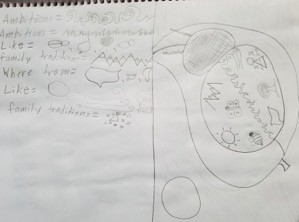 Ambitions =
Ambitions =
Like =
family traditions =
Where from =
Like =
family traditions =